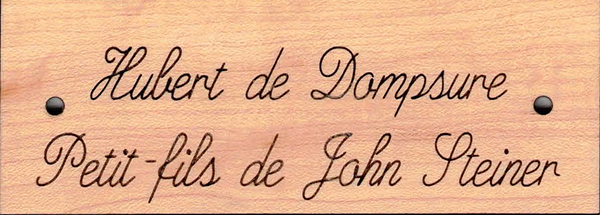 Hubert de Dompsure
Petit-fils de John Steiner